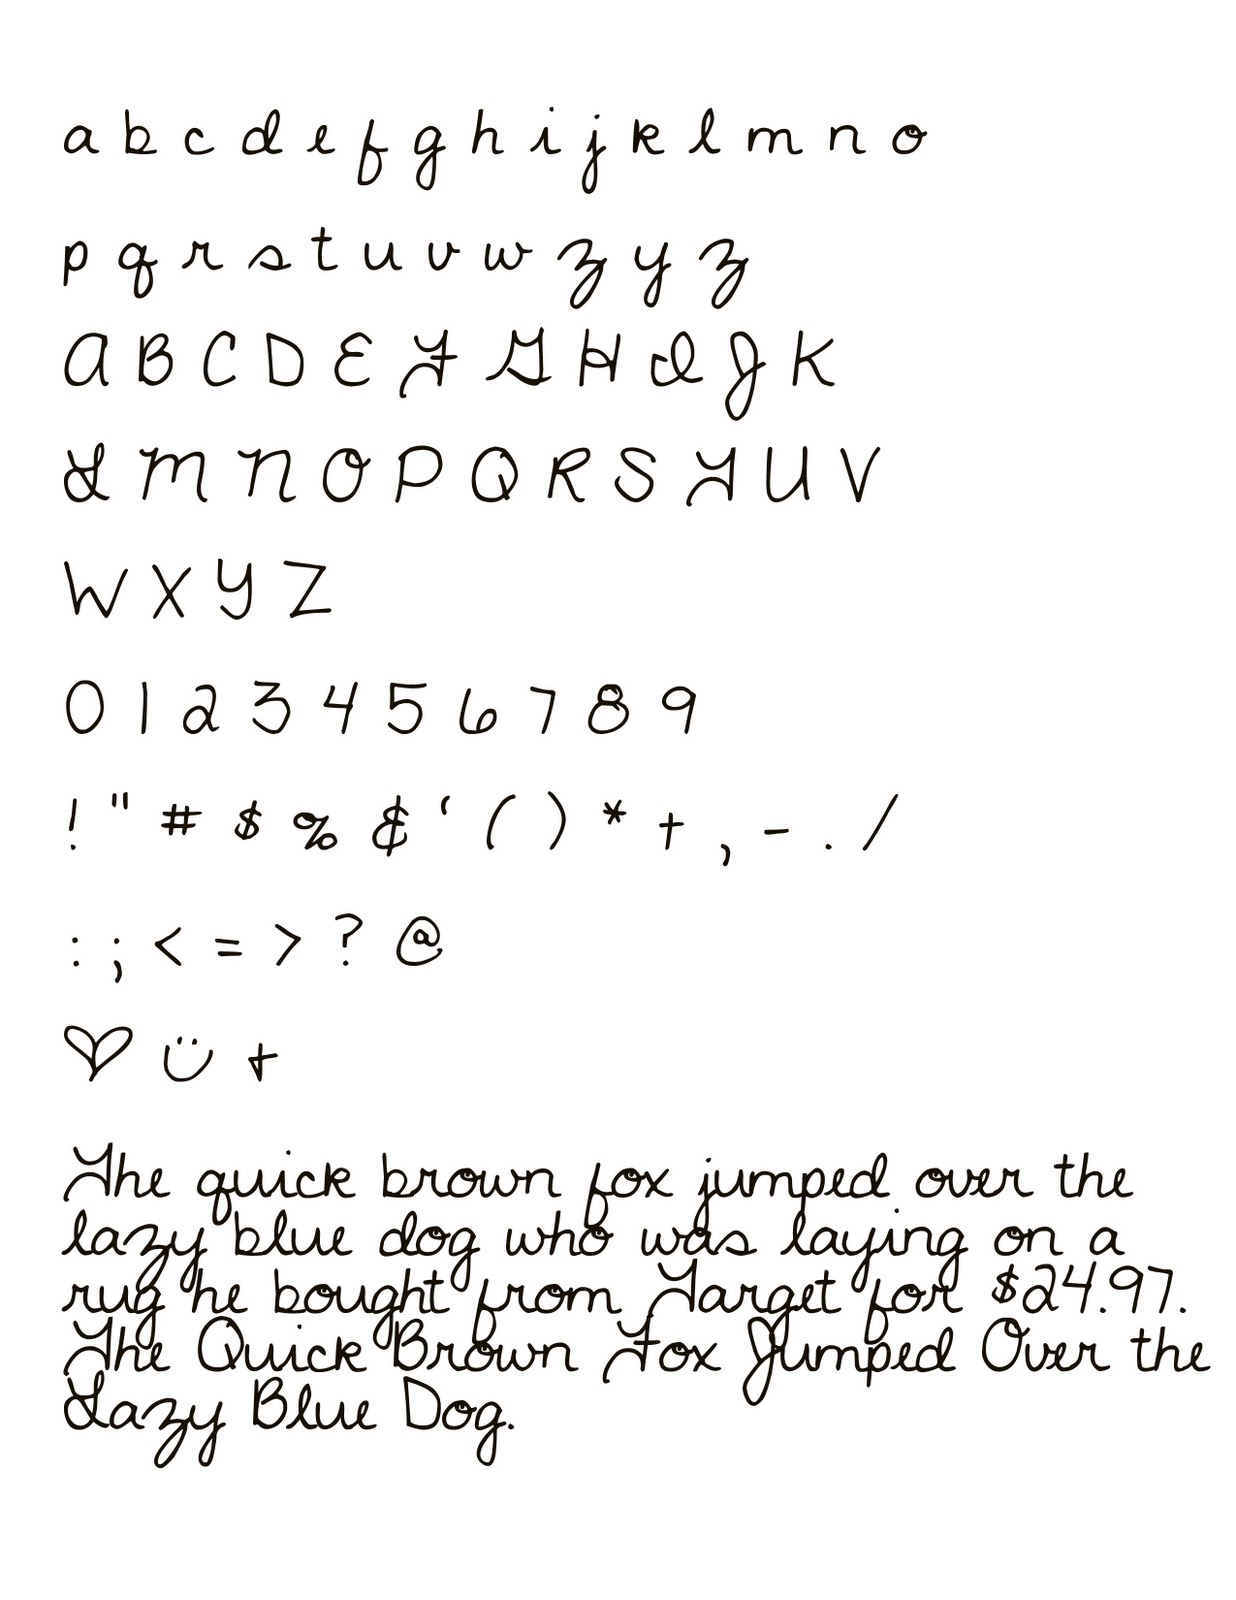 a b c d e f g h i j k l m n o
p q r s t u v w z y z
A B C D E F G H I J K
L M N O P Q R S T U V
W X Y Z
0 1 2 3 4 5 6 7 8 9
! " # $ % & ‘ ( ) * + , - . /
: ; < = > ? @
♡ ü +
The quick brown fox jumped over the
lazy blue dog who was laying on a
rug he bought from Target for $24.97.
The Quick Brown Fox Jumped Over the
Lazy Blue Dog.